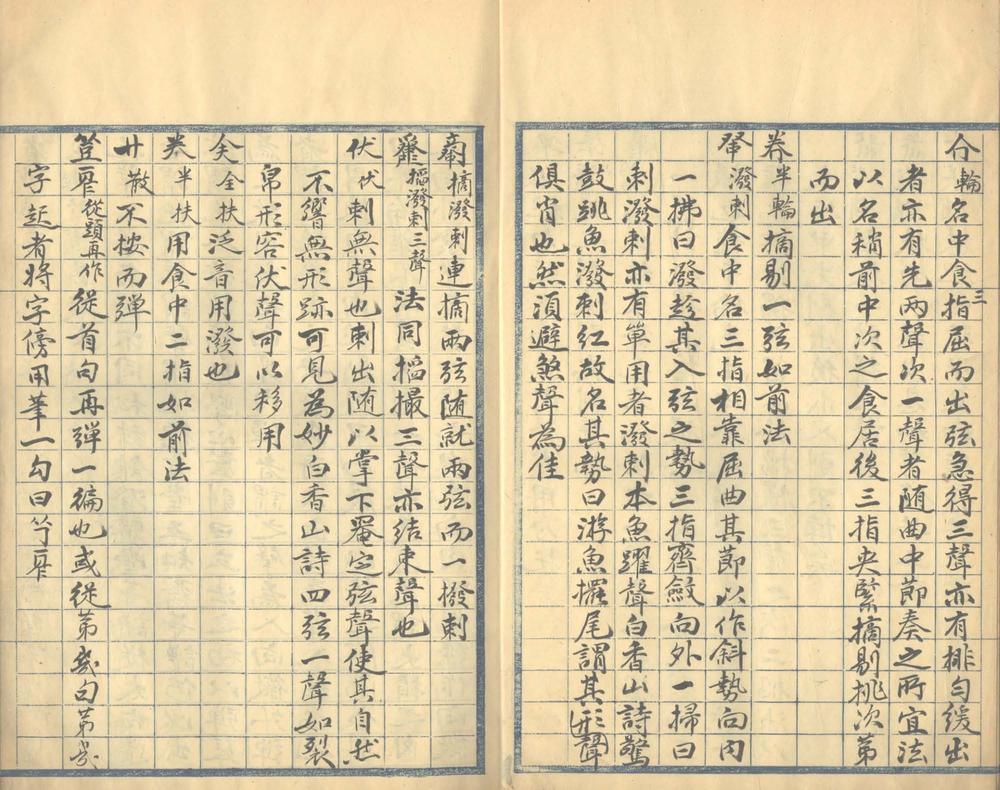 仒輪名中食三指屈而出弦急得三聲亦有排勻緩出
者亦有先兩聲次一聲者随曲中節奏之所宜法
以名稍前中次之食居後三指夾緊摘剔挑次第
而出
半輪摘剔一弦如前法
潑剌食中名三指相靠屈曲其節以作斜勢向內
一拂曰潑趁其入弦之勢三指齊斂向外一掃曰
刺潑刺亦有單用者潑刺本魚躍聲白香山詩驚
鼓跳魚潑刺紅故名其勢曰游魚擺尾謂其形聲
俱肖也然須避煞聲為佳
摘潑刺連摘兩弦随就兩弦而一撥刺
搯潑刺三聲法同搯撮三聲亦結束聲也
伏伏刺無聲也刺出随以掌下罨定弦聲使其自然
不響無形跡可見為妙白香山詩四弦一聲如裂
帛形容伏聲可以移用
全扶泛音用潑也
半扶用食中二指如前法
廾散不按而弹
從頭再作從首句再弹一徧也或從第幾句第幾
字起者將字傍用筆一勾曰